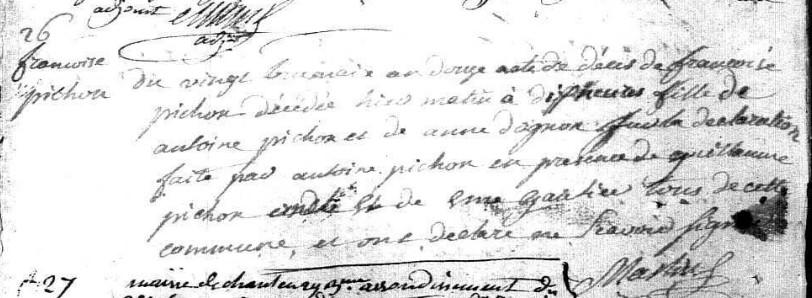 adjoint
adjt
26
françoise
pichon
du vingt brumaire an douze acte de décès de françoise
pichon décédée hier matin à dix heures fille de
antoine pichon et de anne dagnon sur la declaration
faite par antoine pichon en presence de guillaume
pichon et de gautier tous de cette
commune, et ont declaré ne savoir signe
Martin
27
mairie de arrondissement de